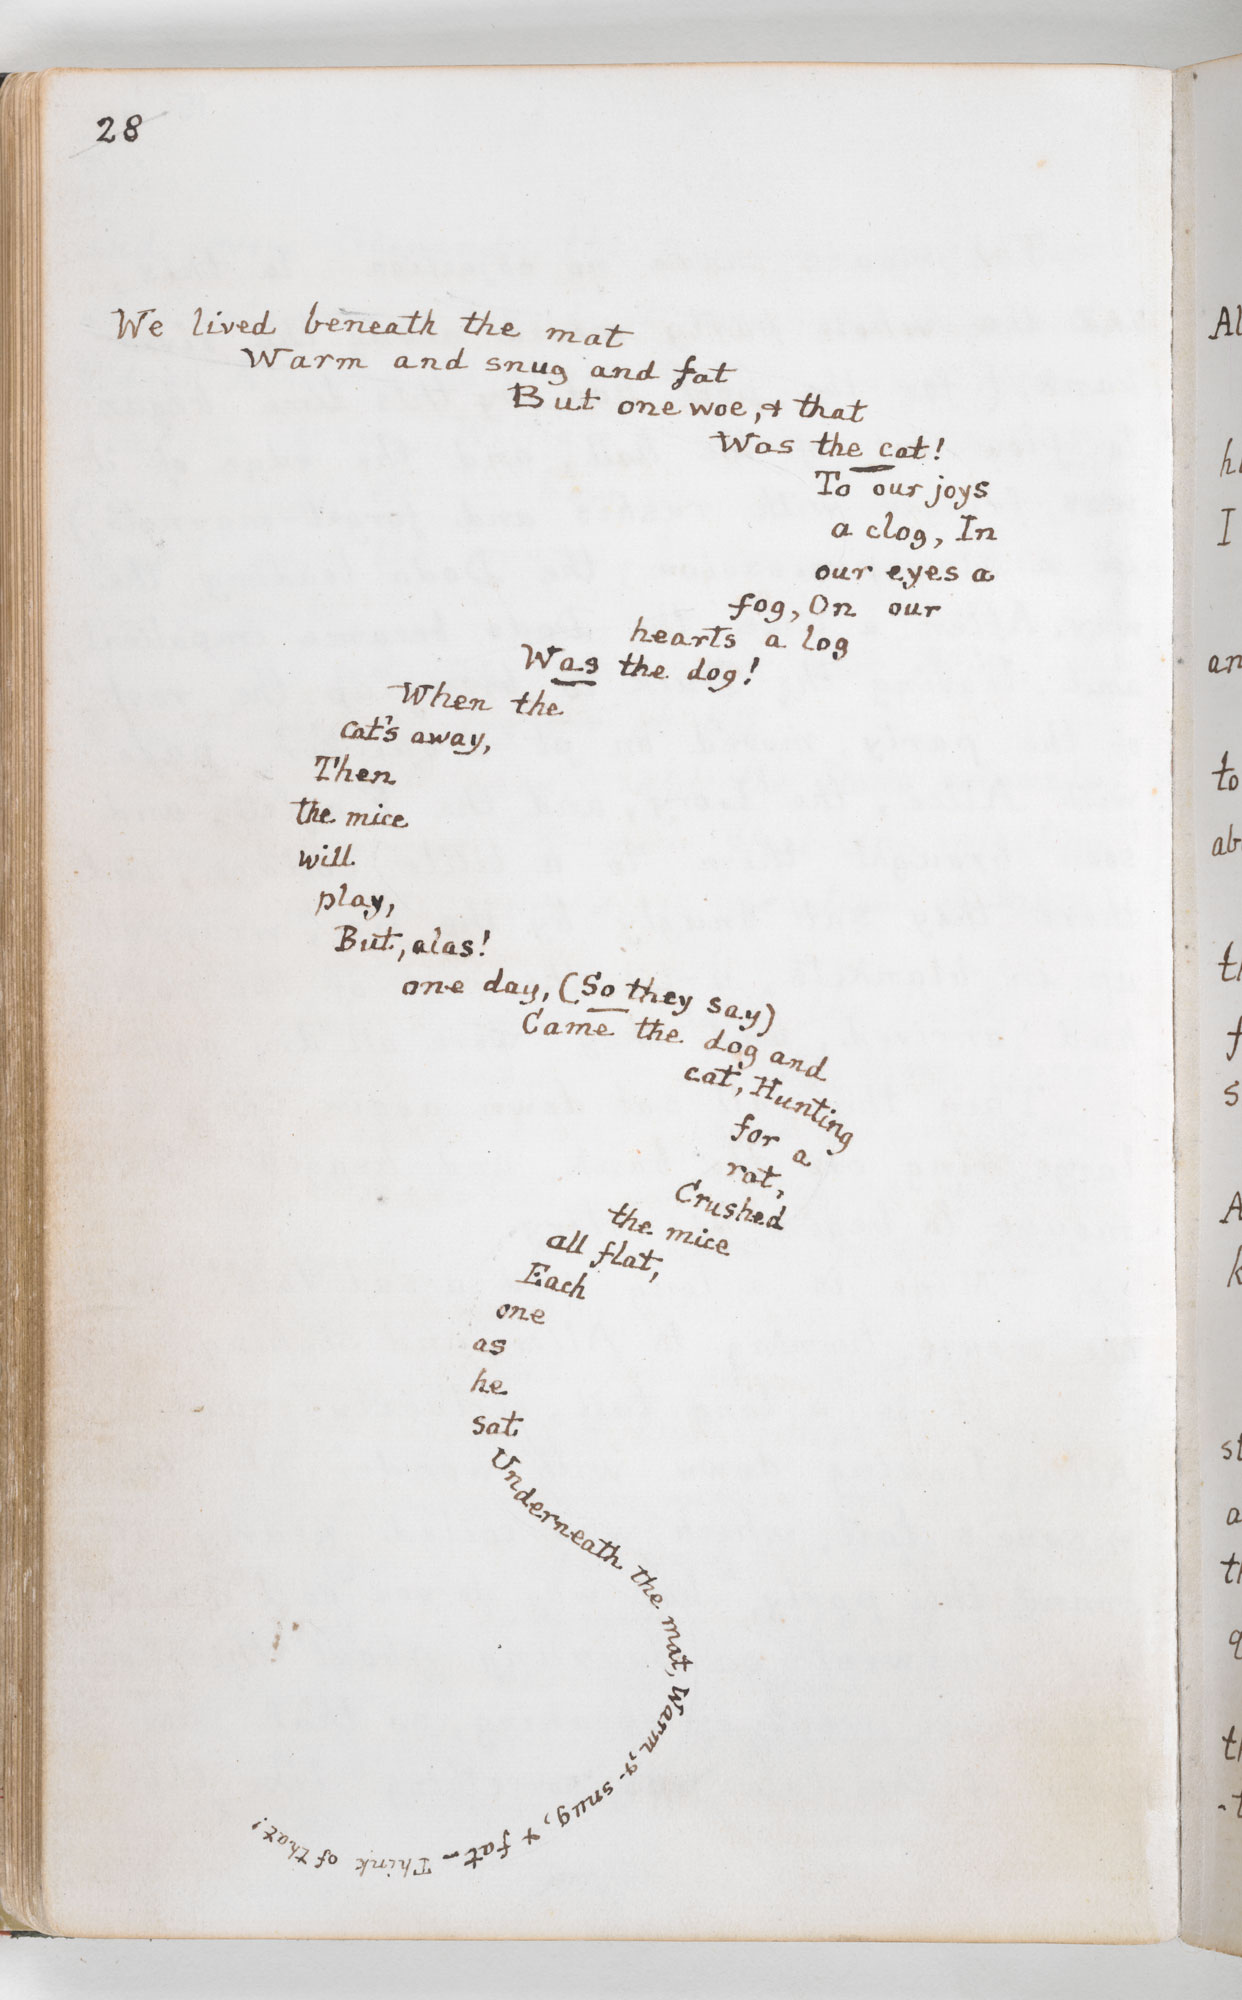 28
We lived beneath the mat
Warm and snug and fat
But one woe, & that
Was the cat!
To our joys
a clog, In
our eyes a
fog, On our
hearts a log
Was the dog!
When the
cat's away,
Then
the mice
will
play,
But, alas!
one day, (So they say)
Came the dog and
cat, Hunting
for a
rat,
Crushed
the mice
all flat,
Each
one
as
he
sat
Underneath the mat, Warm, & snug, & fat - Think of that!
Al
I
an
to
ab